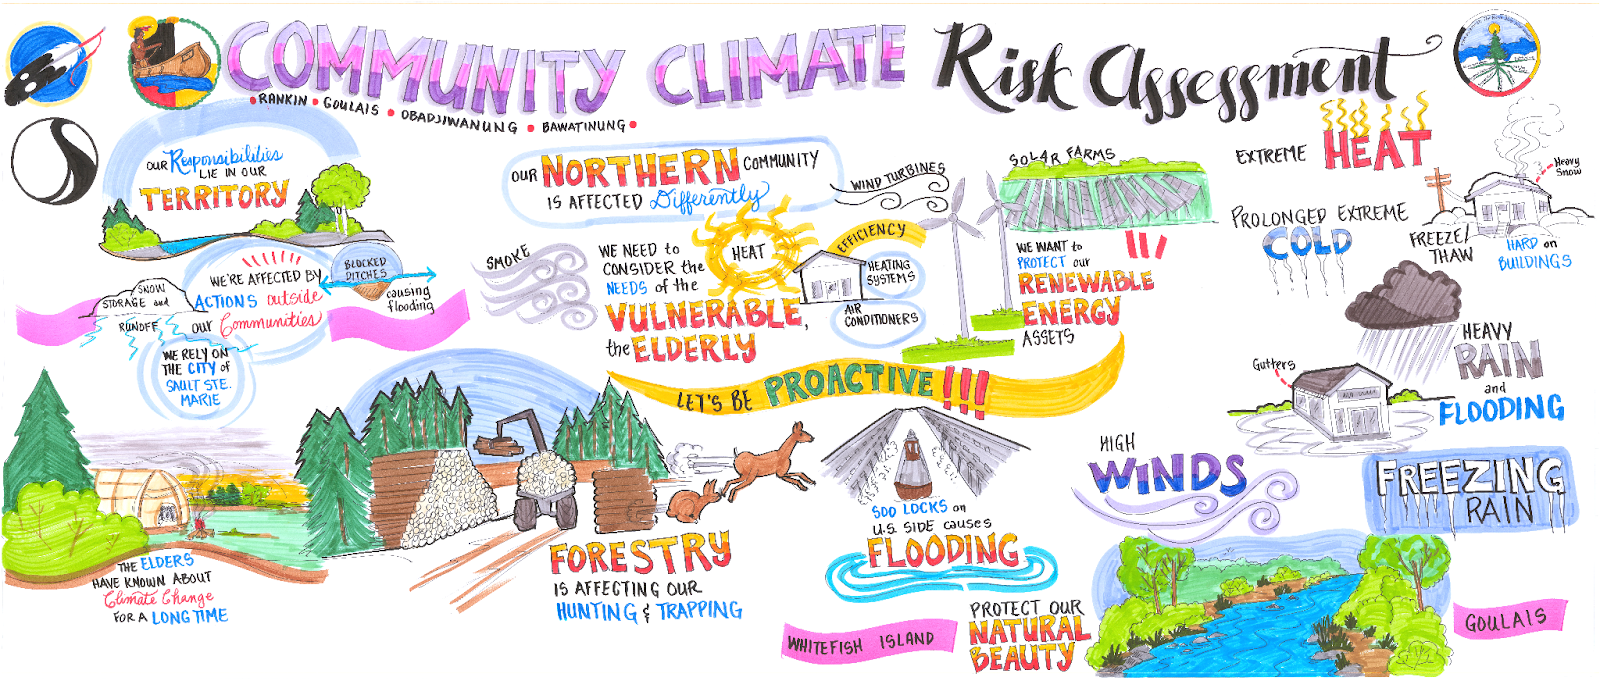 COMMUNITY CLIMATE Risk Assessment
• RANKIN • GOULAIS • OBADJIWANUNG • BAWATINUNG •
OUR Responsibilities
LIE IN OUR
TERRITORY
SNOW
STORAGE and
RUNOFF
WE'RE AFFECTED BY
ACTIONS outside
our Communities
BLOCKED
DITCHES
causing
flooding
WE RELY ON
THE CITY of
SAULT STE.
MARIE
THE ELDERS
HAVE KNOWN ABOUT
Climate Change
FOR A LONG TIME
OUR NORTHERN COMMUNITY
IS AFFECTED Differently
SMOKE
WE NEED to
CONSIDER the
NEEDS of the
VULNERABLE,
the ELDERLY
HEAT
EFFICIENCY
HEATING
SYSTEMS
AIR
CONDITIONERS
WIND TURBINES
SOLAR FARMS
WE WANT to
PROTECT our
RENEWABLE
ENERGY
ASSETS
LET'S BE PROACTIVE!!!
FORESTRY
IS AFFECTING OUR
HUNTING & TRAPPING
SOO LOCKS on
U.S. SIDE causes
FLOODING
WHITEFISH ISLAND
PROTECT OUR
NATURAL
BEAUTY
GOULAIS
EXTREME HEAT
PROLONGED EXTREME
COLD
Heavy
Snow
FREEZE/
THAW
HARD on
BUILDINGS
HEAVY
RAIN
and
FLOODING
Gutters
HIGH
WINDS
FREEZING
RAIN